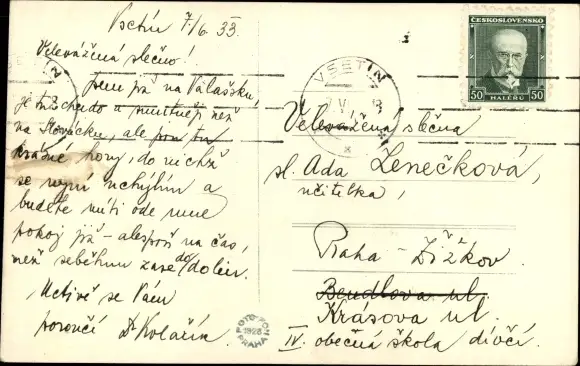 Vsetín 7/6 33.
Velevážená slečno!
Jsem již na Valašsku,
je tu chudo a smutněji než
na Slovácku, ale jsou tu
krásné hory, do nichž
se nyní uchýlím a
budete míti ode mne
pokoj již - alespoň na čas,
než seběhnu zase do dolin.
Uctivě se Vám
poroučí Dr Kolařík.
FOTO FON
1928
PRAHA
VSETÍN
ČESKOSLOVENSKO
50 HALÉŘŮ 50
Velevážená slečna
sl. Ada Ženečková,
učitelka,
Praha - Žižkov.
Bendlova ul.
Krásova ul.
IV. obecná škola dívčí.